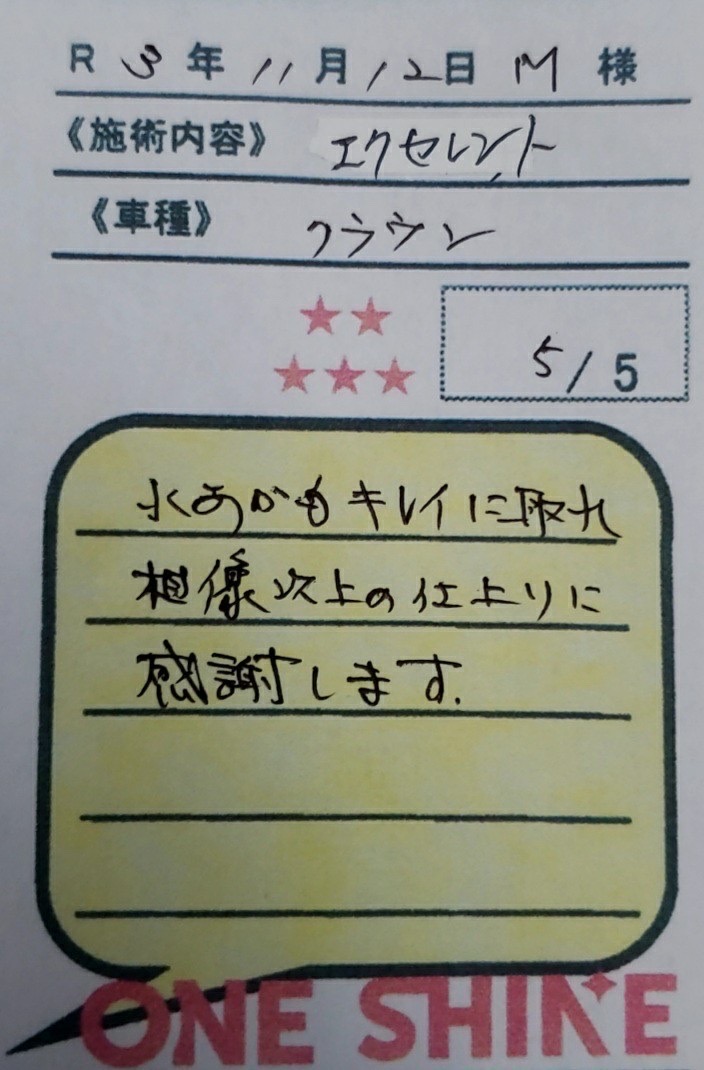 R 3年 11月 12日 M 様
《施術内容》 エクセレント
《車種》 クラウン
5/5
水あかもキレイに取れ
想像以上の仕上りに
感謝します.
ONE SHINE